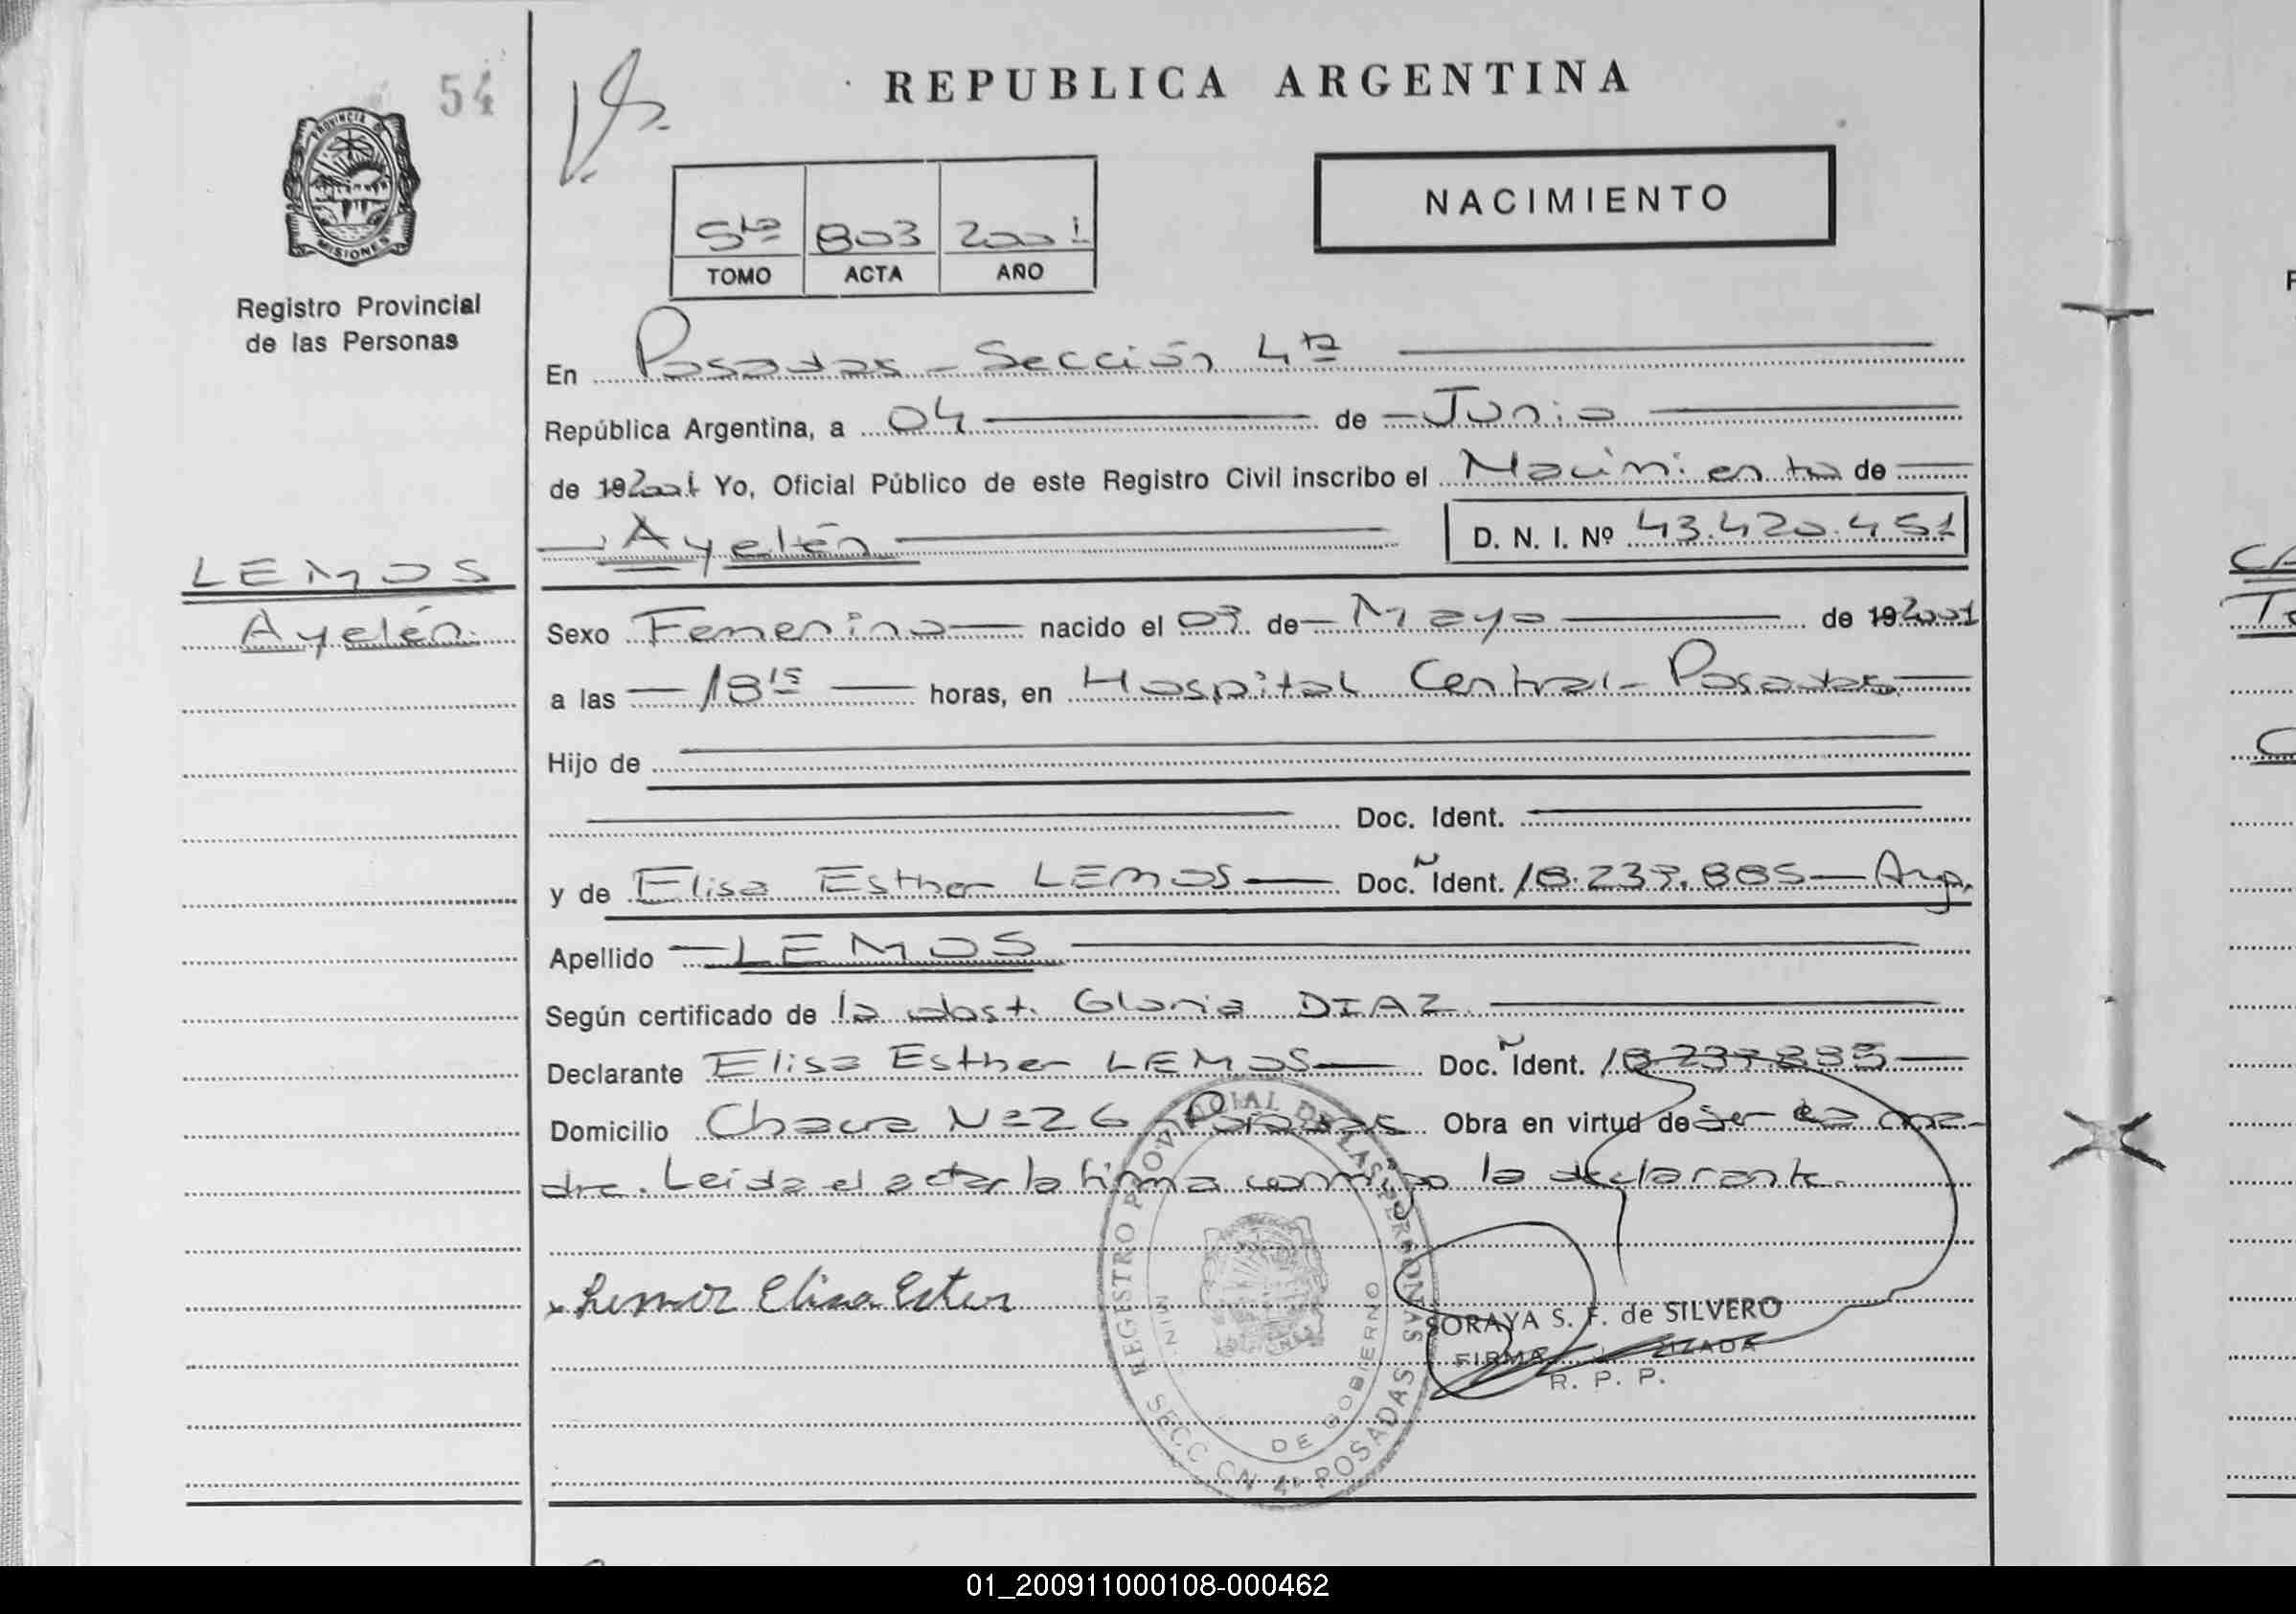 54
REPUBLICA ARGENTINA
PROVINCIA DE
MISIONES
Registro Provincial
de las Personas
NACIMIENTO
5to 803 2001
TOMO ACTA AÑO
En Posadas - Sección 4ta
República Argentina, a 04 de Junio
de 192001 Yo, Oficial Público de este Registro Civil inscribo el Nacimiento de
Ayelén D. N. I. Nº 43.420.451
LEMOS
Ayelén
Sexo Femenino nacido el 03 de Mayo de 192001
a las 18 15 horas, en Hospital Central - Posadas
Hijo de
Doc. Ident.
y de Elisa Esther LEMOS Doc. Ident. 18.237.885 - Arg.
Apellido LEMOS
Según certificado de la obst. Gloria DIAZ
Declarante Elisa Esther LEMOS Doc. Ident. 18.237.885
Domicilio Chacra Nº 26 Posadas Obra en virtud de ser la ma-
dre. Leída el acta, la firma conmigo la declarante.
x Lemos Elisa Ester
REGISTRO PROVINCIAL DE LAS PERSONAS
MIN. DE GOBIERNO
SECC CN 4a POSADAS
SORAYA S. F. de SILVERO
FIRMA
R. P. P.
01_200911000108-000462